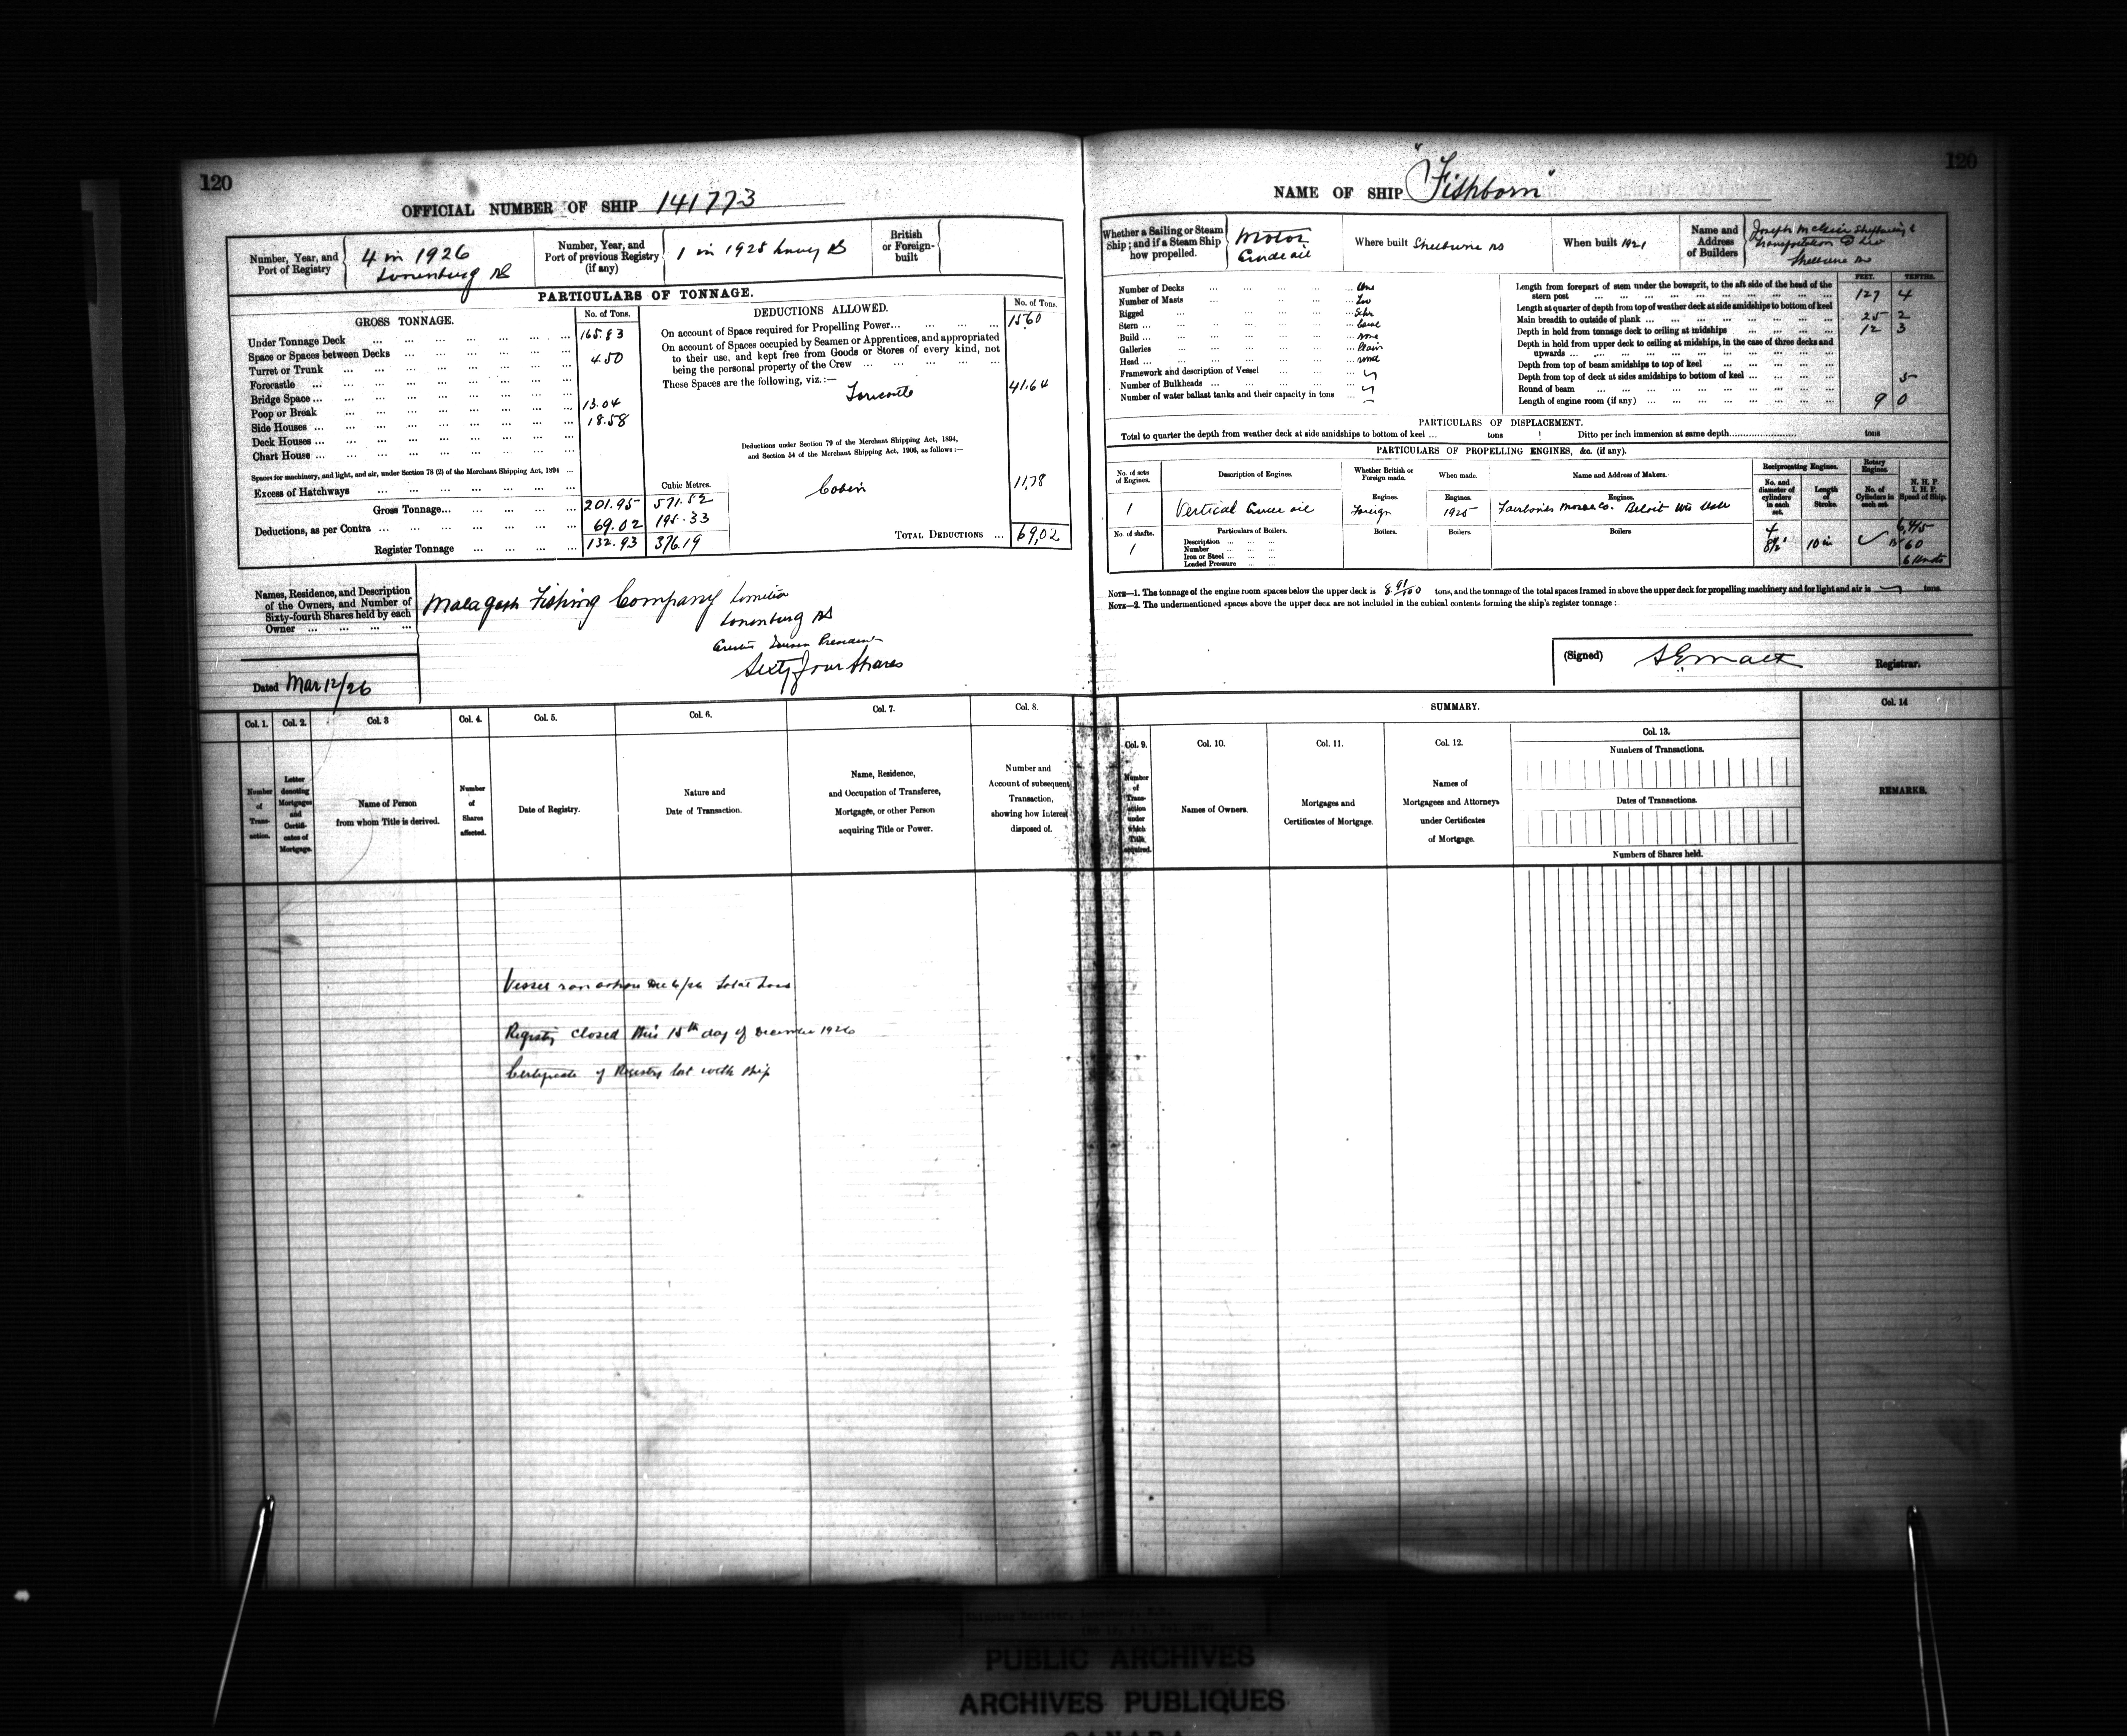 120
OFFICIAL NUMBER OF SHIP 141773
Number, Year, and
Port of Registry
4 in 1926
Lunenburg NS
Number, Year, and
Port of previous Registry
(if any)
1 in 1925
NS
British
or Foreign-
built
PARTICULARS OF TONNAGE.
GROSS TONNAGE.
No. of Tons.
Under Tonnage Deck ... 165.83
Space or Spaces between Decks ...
Turret or Trunk ... 4.50
Forecastle ...
Bridge Space ...
Poop or Break ... 13.04
Side Houses ... 18.58
Deck Houses ...
Chart House ...
Spaces for machinery, and light, and air, under Section 78 (2) of the Merchant Shipping Act, 1894 ...
Excess of Hatchways ...
Cubic Metres.
Gross Tonnage... 201.95 571.52
Deductions, as per Contra ... 69.02 195.33
Register Tonnage ... 132.93 376.19
DEDUCTIONS ALLOWED.
No. of Tons.
On account of Space required for Propelling Power... 15.60
On account of Spaces occupied by Seamen or Apprentices, and appropriated
to their use, and kept free from Goods or Stores of every kind, not
being the personal property of the Crew ...
These Spaces are the following, viz.:— 41.64
Forecastle
Deductions under Section 79 of the Merchant Shipping Act, 1894,
and Section 54 of the Merchant Shipping Act, 1906, as follows:—
Cabin 11.78
TOTAL DEDUCTIONS ... 69,02
Names, Residence, and Description
of the Owners, and Number of
Sixty-fourth Shares held by each
Owner ...
Malagash Fishing Company Limited
Lunenburg NS
President
Sixty four Shares
Dated Mar 12/26
Col. 1. Col. 2. Col. 3 Col. 4. Col. 5. Col. 6. Col. 7. Col. 8.
Number
of
Trans-
action.
Letter
denoting
Mortgages
and
Certifi-
cates of
Mortgage.
Name of Person
from whom Title is derived.
Number
of
Shares
affected.
Date of Registry.
Nature and
Date of Transaction.
Name, Residence,
and Occupation of Transferee,
Mortgagee, or other Person
acquiring Title or Power.
Number and
Account of subsequent
Transaction,
showing how Interest
disposed of.
Vessel ran ashore Dec 6/26 Total Loss
Registry closed this 15th day of December 1926
Certificate of Registry lost with ship
120
NAME OF SHIP "Fishborn"
Whether a Sailing or Steam
Ship; and if a Steam Ship
how propelled.
Motor
Crude oil
Where built Shelburne NS
When built 1921
Name and
Address
of Builders
Joseph McGill Shipbuilding &
Transportation Co Ltd
Shelburne NS
Number of Decks ... One
Number of Masts ... Two
Rigged ... Schr
Stern ...
Build ...
Galleries ... none
Head ...
Framework and description of Vessel ...
Number of Bulkheads ...
Number of water ballast tanks and their capacity in tons ...
FEET. TENTHS.
Length from forepart of stem under the bowsprit, to the aft side of the head of the
stern post ... 127 4
Length at quarter of depth from top of weather deck at side amidships to bottom of keel
Main breadth to outside of plank ... 25 2
Depth in hold from tonnage deck to ceiling at midships ... 12 3
Depth in hold from upper deck to ceiling at midships, in the case of three decks and
upwards ...
Depth from top of beam amidships to top of keel ...
Depth from top of deck at sides amidships to bottom of keel ...
Round of beam ... 5
Length of engine room (if any) ... 9 0
PARTICULARS OF DISPLACEMENT.
Total to quarter the depth from weather deck at side amidships to bottom of keel ... tons Ditto per inch immersion at same depth... tons
PARTICULARS OF PROPELLING ENGINES, &c. (if any).
No. of sets
of Engines.
Description of Engines.
Whether British or
Foreign made.
When made.
Name and Address of Makers.
Reciprocating Engines.
No. and
diameter of
cylinders
in each
set.
Length
of
Stroke.
Rotary
Engines.
No. of
Cylinders in
each set.
N. H. P.
I. H. P.
Speed of Ship.
Engines. Engines. Engines.
1 Vertical Crude oil Foreign 1925 Fairbanks Morse Co. Beloit Wis
No. of shafts.
1
Particulars of Boilers.
Description ...
Number ...
Iron or Steel ...
Loaded Pressure ...
Boilers. Boilers. Boilers
4
8½" 10 in 60
6 Knots
NOTE—1. The tonnage of the engine room spaces below the upper deck is 8 91/100 tons, and the tonnage of the total spaces framed in above the upper deck for propelling machinery and for light and air is tons.
NOTE—2. The undermentioned spaces above the upper deck are not included in the cubical contents forming the ship's register tonnage:
(Signed) Registrar.
SUMMARY.
Col. 9. Col. 10. Col. 11. Col. 12. Col. 13. Col. 14
Number
of
Trans-
action
under
which
Title
acquired.
Names of Owners.
Mortgages and
Certificates of Mortgage.
Names of
Mortgagees and Attorneys
under Certificates
of Mortgage.
Numbers of Transactions.
Dates of Transactions.
Numbers of Shares held.
REMARKS.
Shipping Register, Lunenburg, N.S.
PUBLIC ARCHIVES
ARCHIVES PUBLIQUES
CANADA